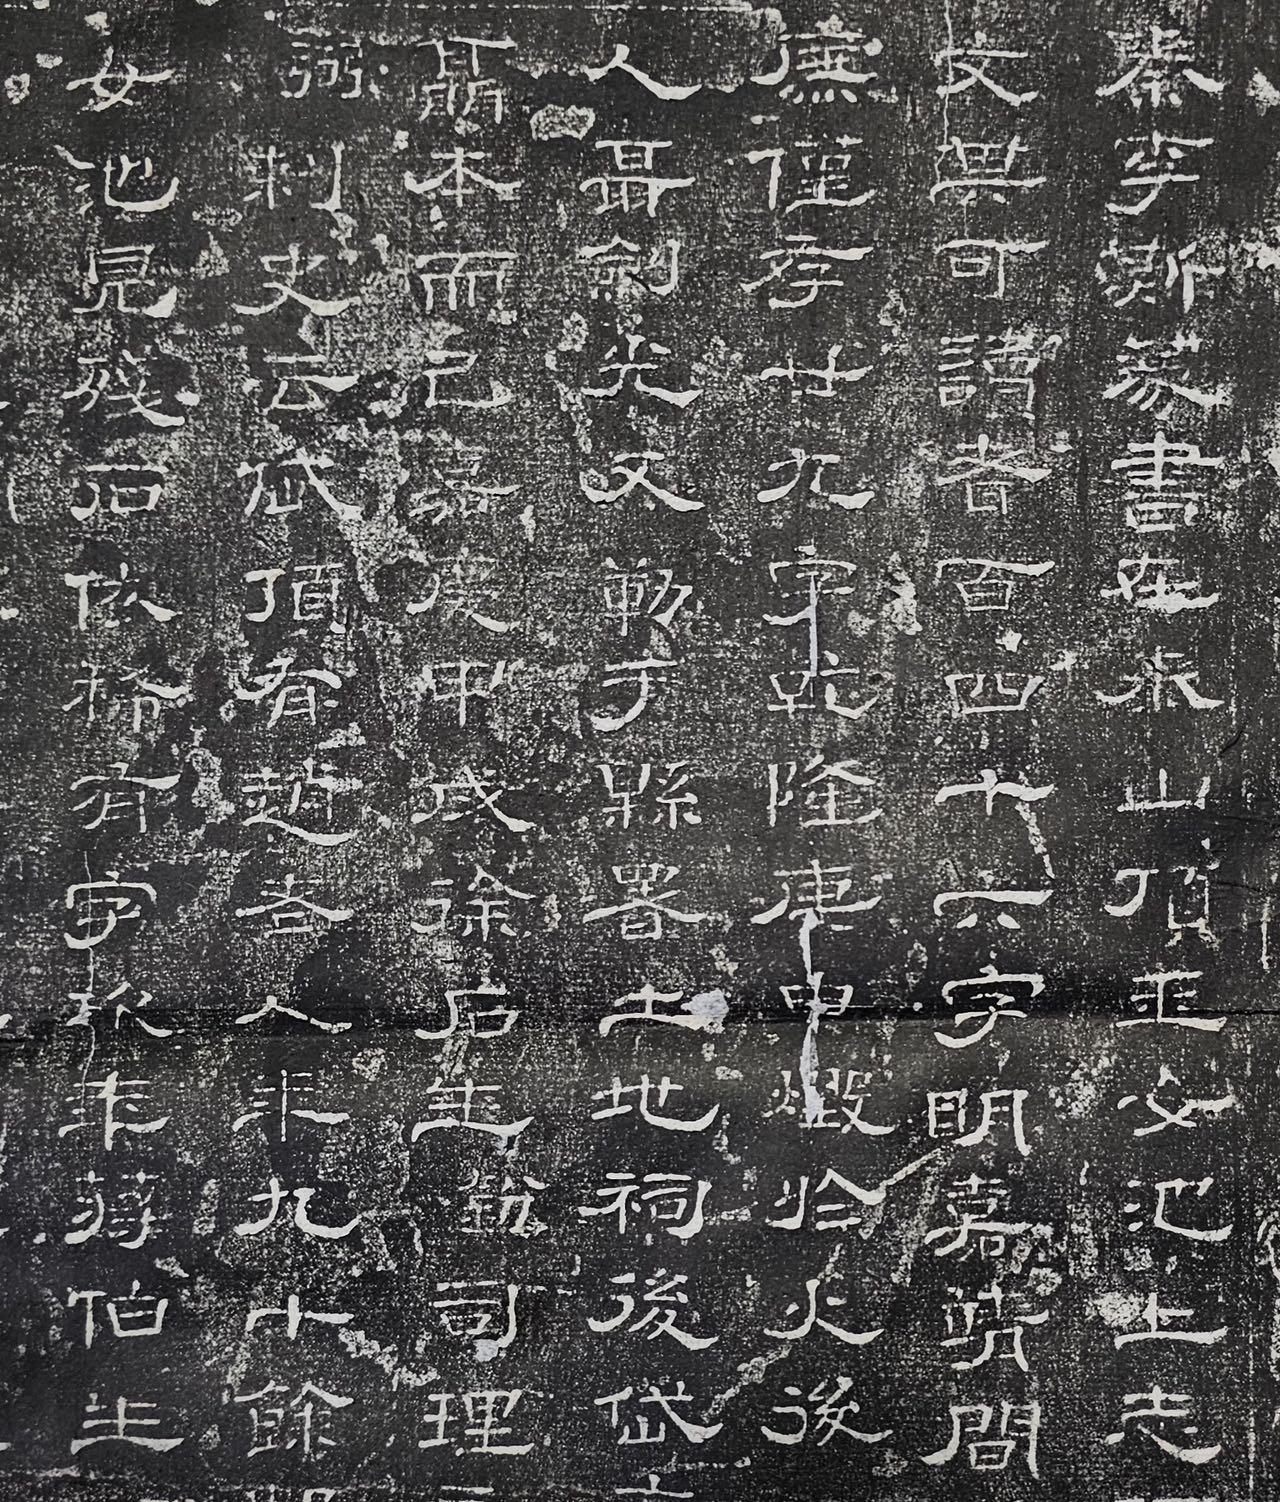 秦李斯篆書在泰山頂玉女池上志
文其可讀者百四十六字明嘉靖間
廡僅存廿九字乾隆庚申燬於火後
人聶劍光又勒于縣署土地祠後岱
聶本而已嘉慶甲戌徐石生鈖司理
弼刺史云岱頂有趙老人年九十餘
女池見殘石依稀有字蔣伯生